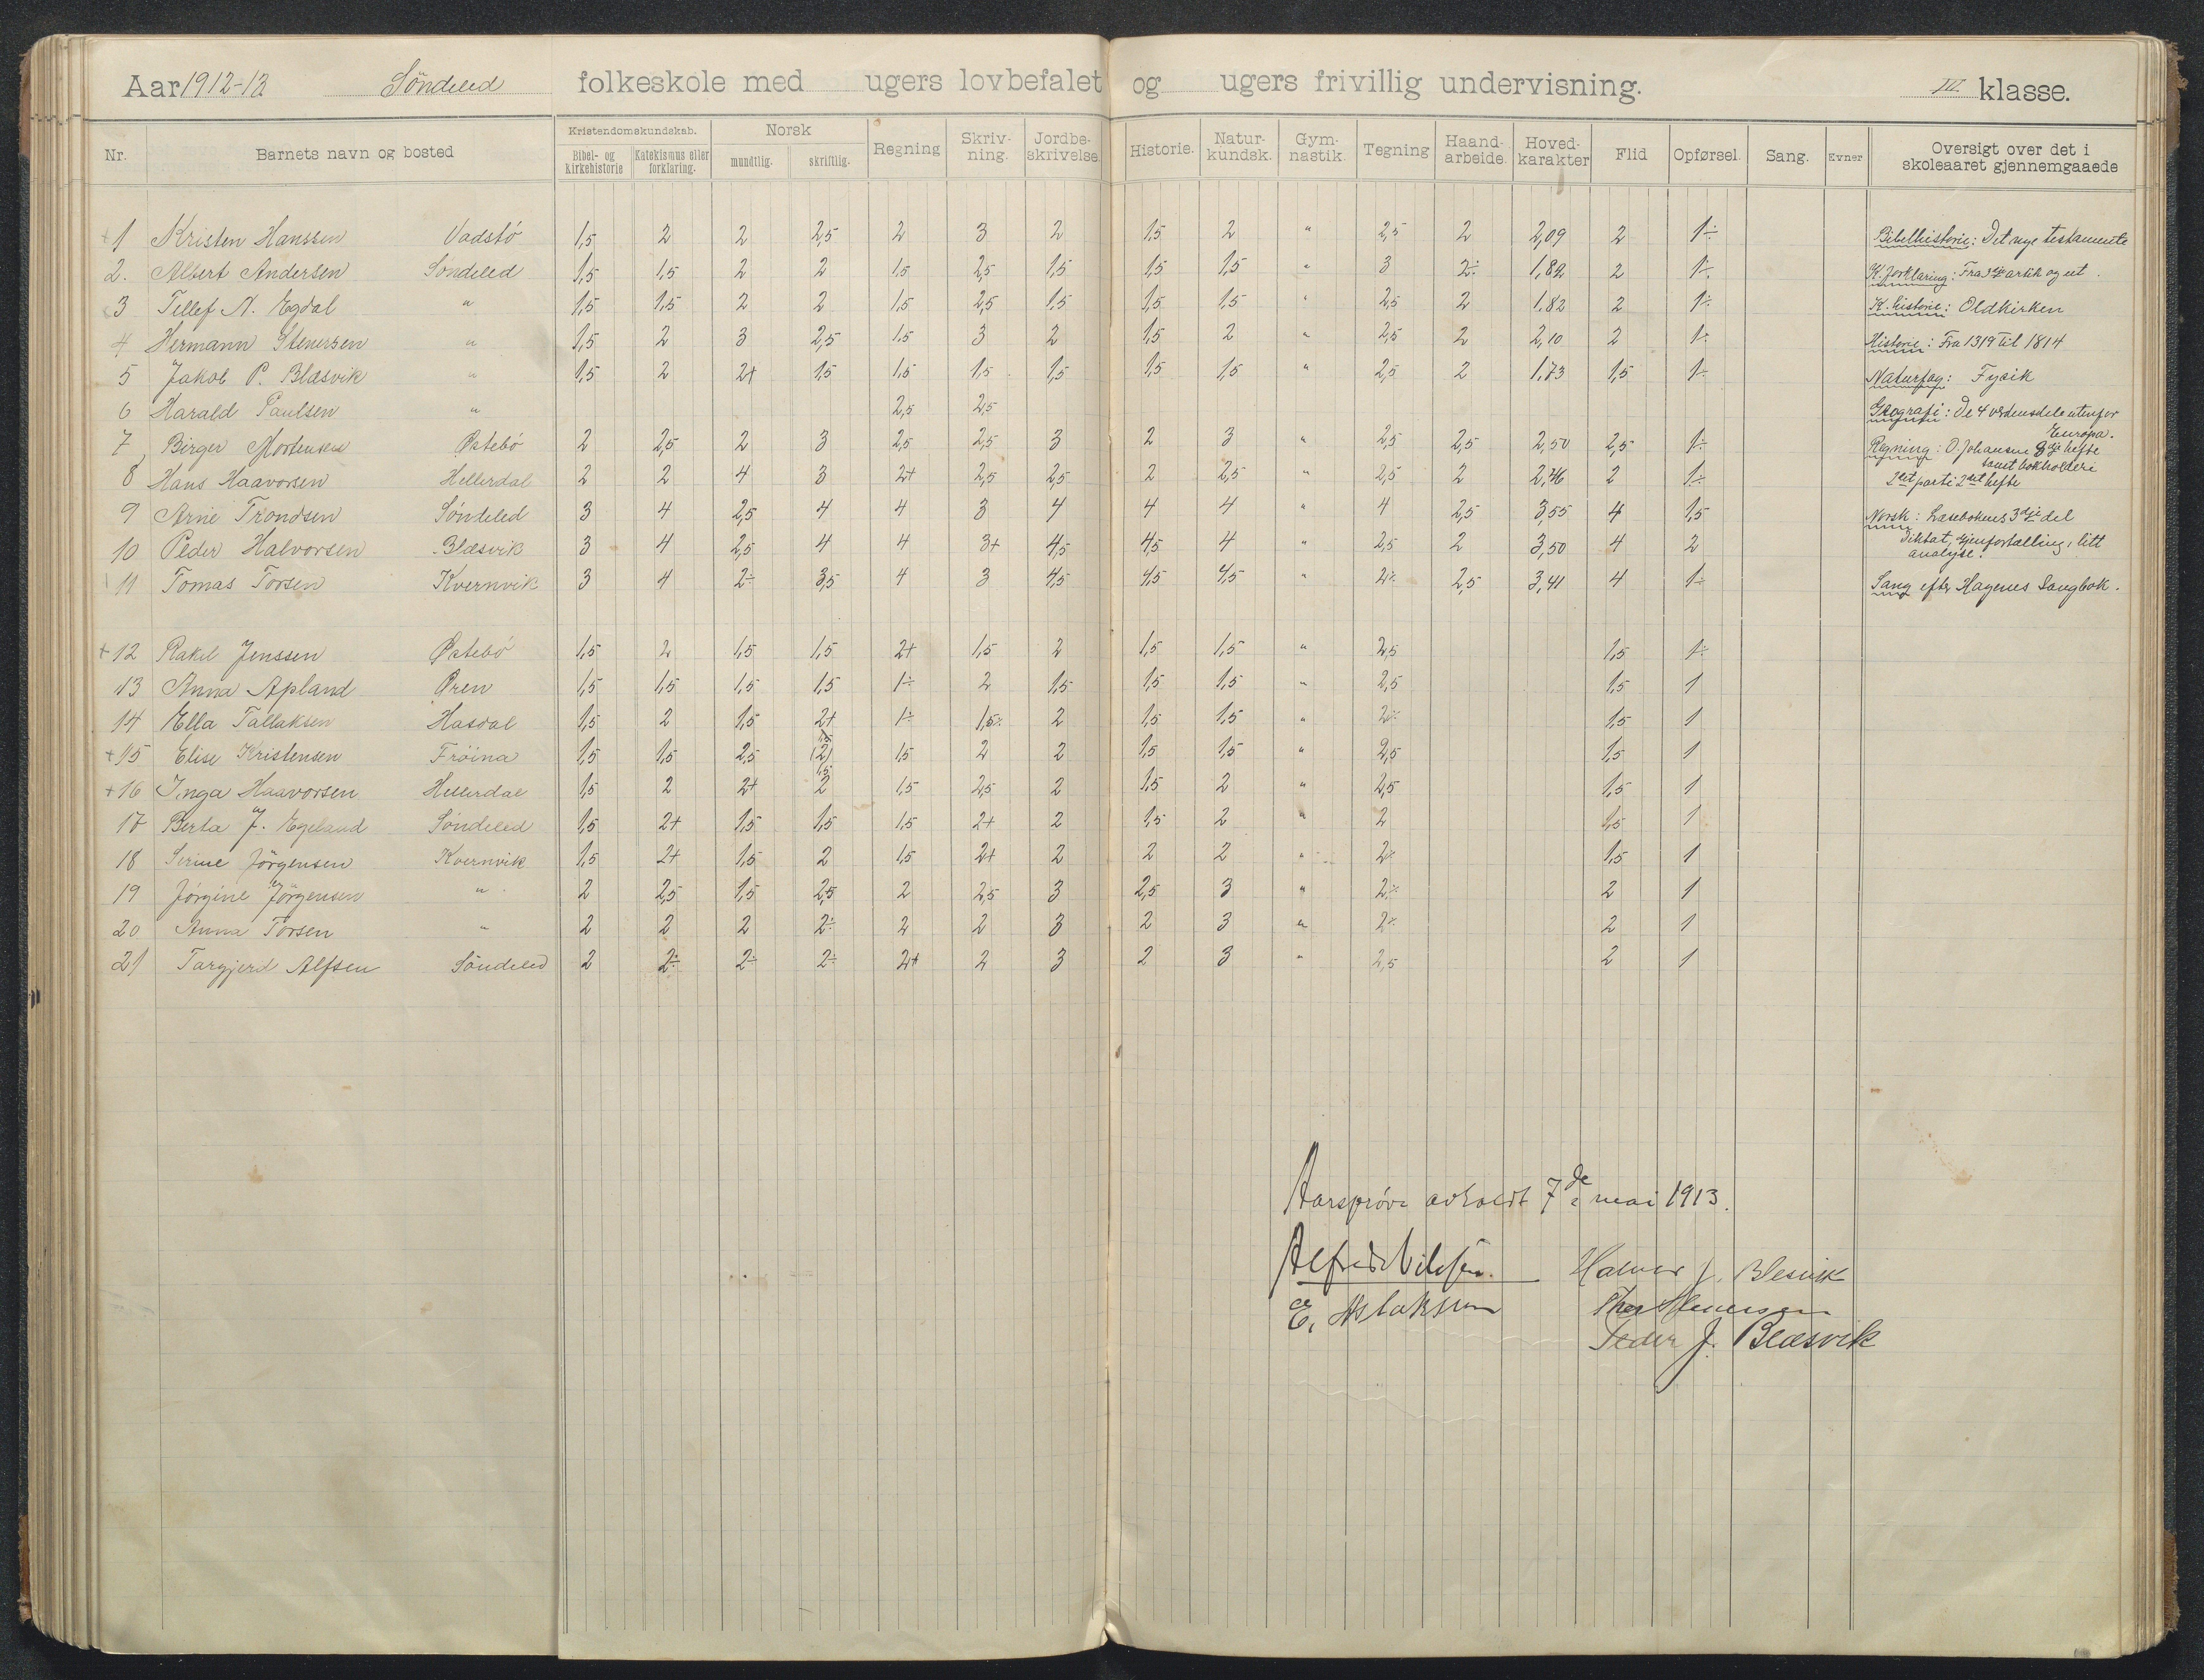 Aar 1912-13 Söndeled folkeskole med ugers lovbefalet og ugers frivillig undervisning. III klasse.
Nr. Barnets navn og bosted Kristendomskundskab. Bibel- og kirkehistorie Katekismus eller forklaring. Norsk mundtlig. skriftlig. Regning Skriv-ning. Jordbe-skrivelse. Historie. Natur-kundsk. Gym-nastik. Tegning Haand-arbeide. Hoved-karakter Flid Opførsel. Sang. Evner Oversigt over det i skoleaaret gjennemgaaede
+1 Kristen Hanssen Vadstö 1,5 2 2 2,5 2 3 2 1,5 2 " 2,5 2 2,09 2 1÷ Bibelhistorie: Det nye testamente
2. Albert Andersen Söndeled 1,5 1,5 2 2 1,5 2,5 1,5 1,5 1,5 " 3 2÷ 1,82 2 1÷ K. forklaring: Fra 3dje artik og ut.
3 Tellef N. Egdal " 1,5 1,5 2 2 1,5 2,5 1,5 1,5 1,5 " 2,5 2 1.82 2 1÷ K. historie: Oldkirken
4 Hermann Stenersen " 1,5 2 3 2,5 1,5 3 2 1,5 2 " 2,5 2 2,10 2 1÷ Historie: Fra 1319 til 1814
5 Jakob P. Blæsvik " 1,5 2 2+ 1,5 1,5 1,5 1,5 1,5 1,5 " 2,5 2 1.73 1,5 1÷ Naturfag: Fysik
6 Harald Paulsen " 2,5 2,5 Geografi: De 4 verdensdele utenfor Europa.
7 Birger Mortensen Østebö 2 2,5 2 3 2,5 2,5 3 2 3 " 2,5 2,5 2,50 2,5 1÷ Regning: O. Johansens 3dje hefte
8 Hans Haavorsen Hellerdal 2 2 4 3 2+ 2,5 2,5 2 2,5 " 2,5 2 2,46 2 1÷ samt bokholderi 2det parti 2det hefte
9 Arne Trondsen Söndeled 3 4 2,5 4 4 3 4 4 4 " 4 2,5 3,55 4 1,5 Norsk: Læsebokens 3dje del
10 Peder Halvorsen Blæsvik 3 4 2,5 4 4 3+ 4,5 4,5 4 " 2,5 2 3,50 4 2 Diktat, gjenfortælling, litt analyse.
11 Tomas Torsen Kvernvik 3 4 2÷ 3,5 4 3 4,5 4,5 4,5 " 2÷ 2,5 3,41 4 1÷ Sang efter Hagenes Sangbok.
+12 Rakel Jenssen Østebö 1,5 2 1,5 1,5 2+ 1,5 2 1,5 1,5 " 2,5 1,5 1÷
13 Anna Apland Øren 1,5 1,5 1,5 1,5 1÷ 2 1,5 1,5 1,5 " 2,5 1,5 1
14 Ella Tallaksen Hasdal 1,5 2 1,5 2+ 1÷ 1,5÷ 2 1,5 1,5 " 2÷ 1,5 1
+15 Elise Kristensen Fröina 1,5 1,5 2,5 (2) 1,5 2 2 1,5 1,5 " 2,5 1,5 1
+16 Inga Haavorsen Hellerdal 1,5 2 2+ 2 1,5 2,5 2 1,5 2 " 2,5 1,5 1
17 Berta J. Egeland Söndeled 1,5 2+ 1,5 1,5 1,5 2+ 2 1,5 2 " 2 1,5 1
18 Serine Jörgensen Kvernvik 1,5 2+ 1,5 2 1,5 2+ 2 2 2 " 2÷ 1,5 1
19 Jörgine Jörgensen " 2 2,5 1,5 2,5 2 2,5 3 2,5 3 " 2÷ 2 1
20 Anna Torsen " 2 2 2 2÷ 2 2 3 2 3 " 2÷ 2 1
21 Targjerd Alfsen Söndeled 2 2÷ 2÷ 2÷ 2+ 2 3 2 3 " 2,5 2 1
Aarspröve avholdt 7de mai 1913.
Alfred Nilsen. Halvor J. Blesvik
E. Aslaksen Stenersen
Peder J. Blæsvik